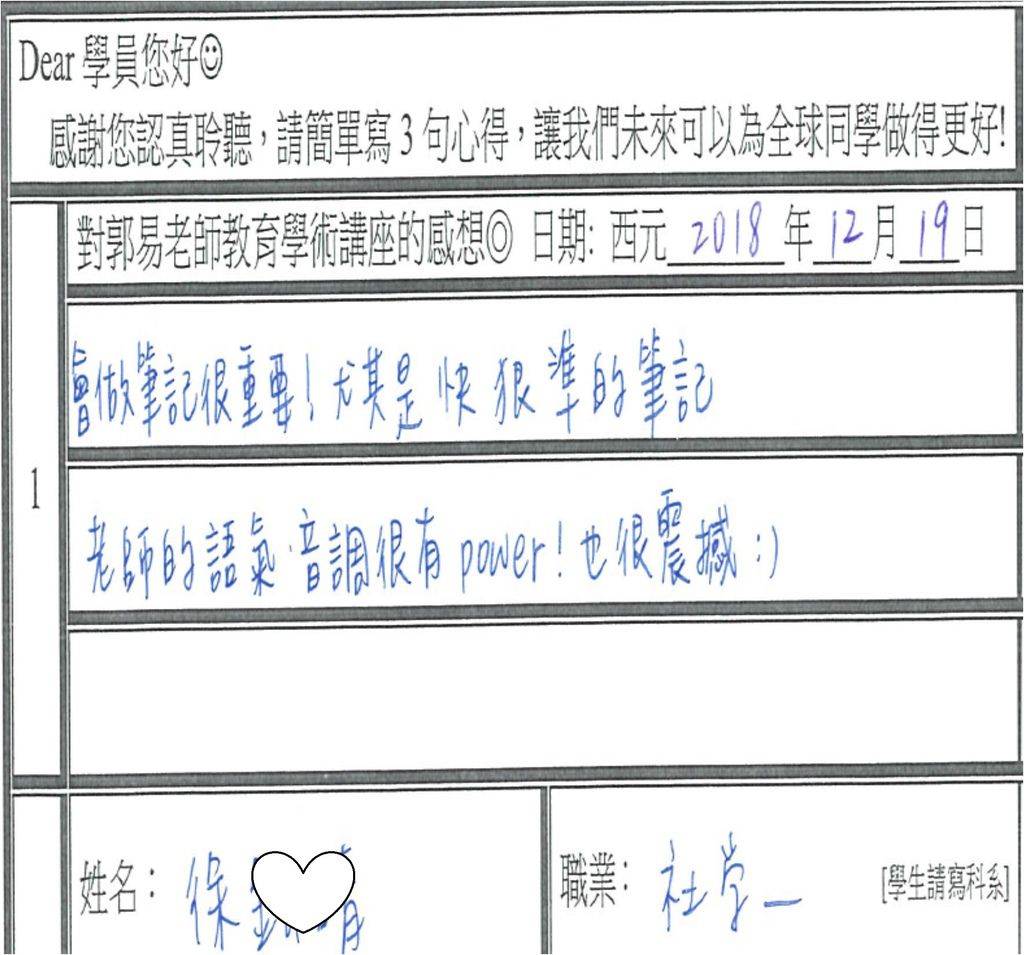 Dear 學員您好☺
感謝您認真聆聽，請簡單寫 3 句心得，讓我們未來可以為全球同學做得更好!
對郭易老師教育學術講座的感想◎ 日期: 西元 2018 年 12 月 19 日
1
會做筆記很重要！尤其是快狠準的筆記
老師的語氣、音調很有 power！也很震撼 :)
姓名：徐
職業：社学一 [學生請寫科系]